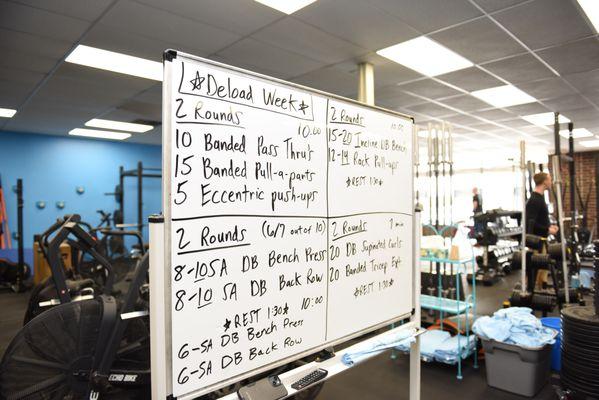 ☆Deload Week☆
2 Rounds
10:00
10 Banded Pass Thru's
15 Banded Pull-a-parts
5 Eccentric push-ups
2 Rounds
10:00
15-20 Incline DB Bench
12-14 Rack Pull-ups
☆REST 1:30☆
2 Rounds (6/7 out of 10)
8-10SA DB Bench Press
8-10 SA DB Back Row
☆REST 1:30☆ 10:00
6-SA DB Bench Press
6-SA DB Back Row
2 Rounds 7 min
20 DB Supinated Curls
20 Banded Tricep Ext
☆REST 1:30☆
ECHO BIKE